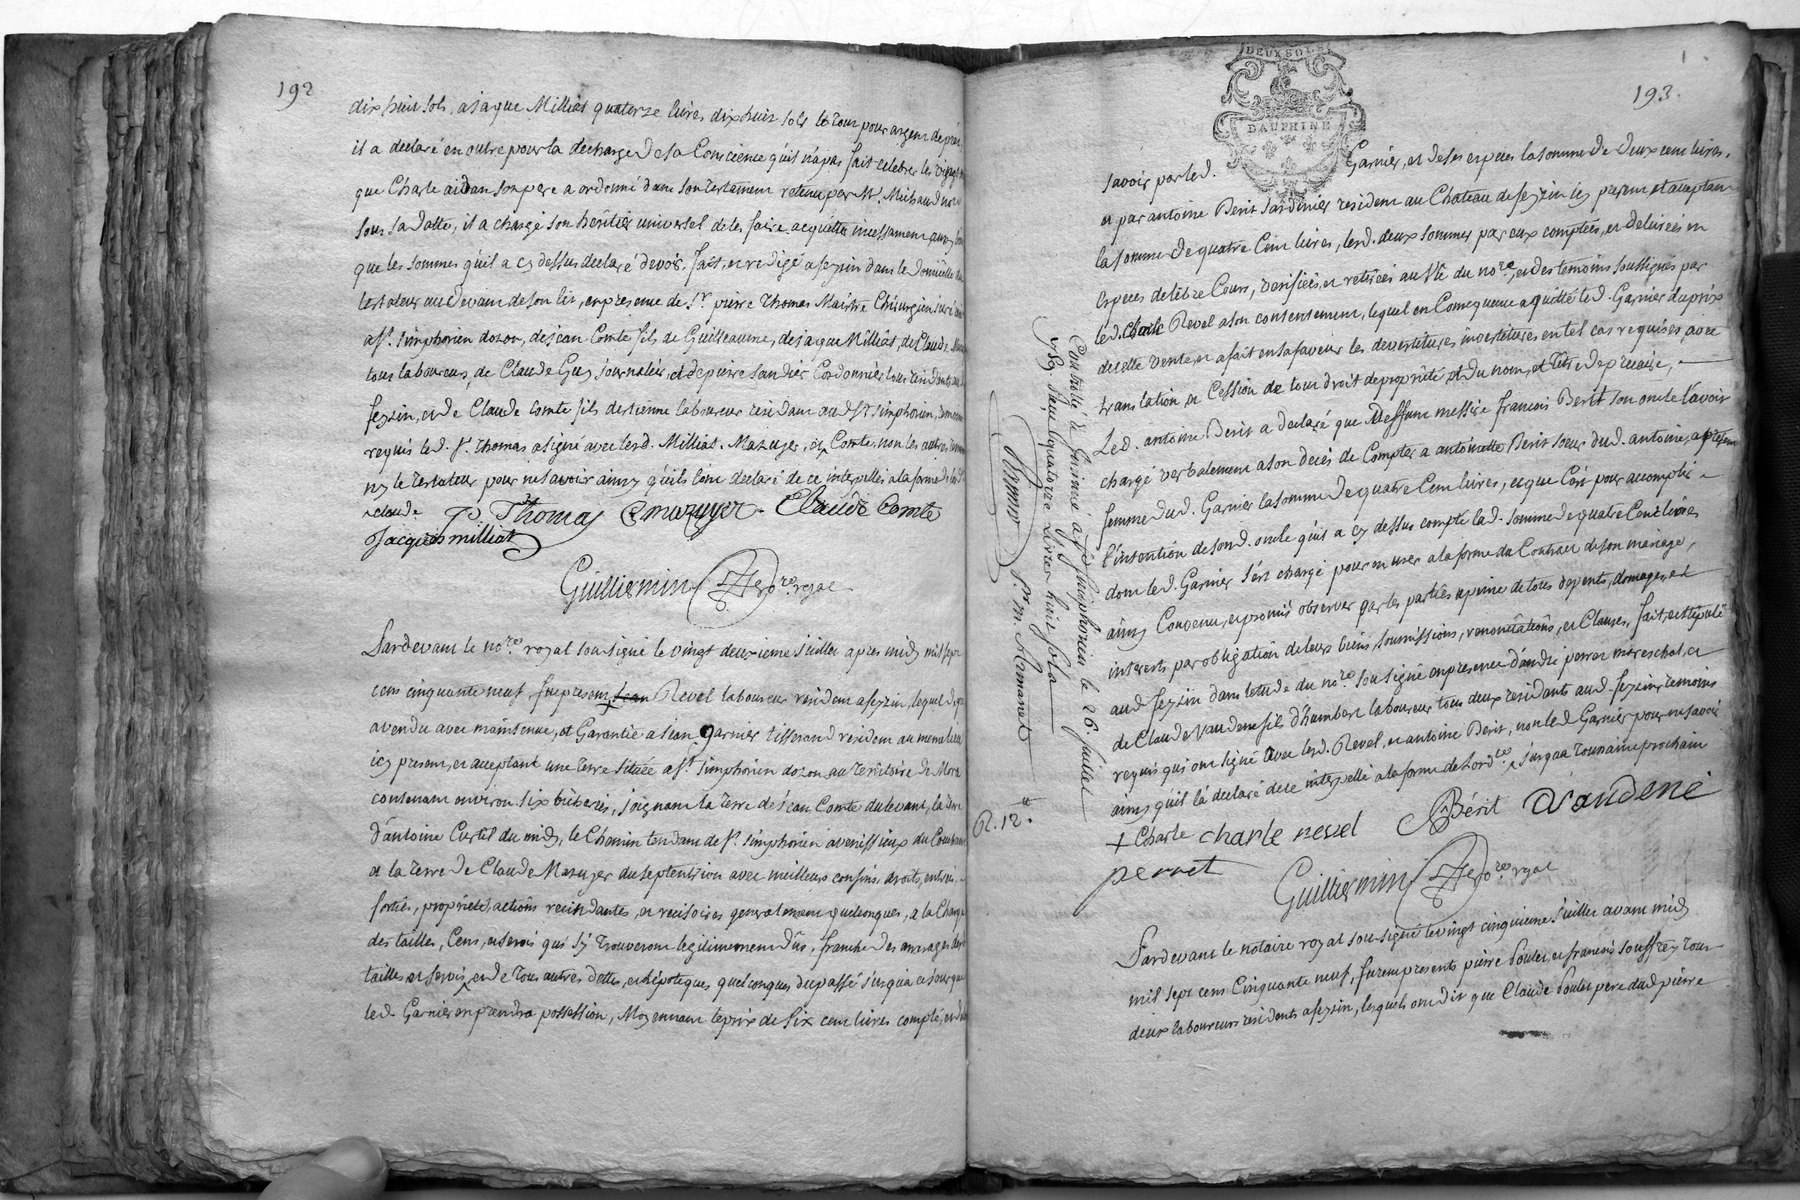 192
dix huit sols, a Jaque Milliat quatorze livres dix huit sols le tout pour argent de prêt
il a declaré en outre pour la decharge de sa Conscience qu'il n'a pas fait celebrer les
que Charle aidan son pere a ordonné dans son testament retenu par Mr. Michaud
sous sa datte, il a chargé son héritier universel de les faire acquitter incessament
que les sommes qu'il a cy dessus declaré devoir, fait, et redigé a seyzin dans le Domicille du
testateur au devant de son lit, en presence de Sr. pierre Thomas Maitre Chirurgien juré
a St. simphorien dozon, de jean Comte fils de Guilleaume, de jaque Milliat, de Claude
tous laboureurs, de Claude Guy journalier, et de pierre Cordonnier tous residents
seyzin, et de Claude Comte fils d'estienne laboureur resident aud. St. simphorien, temoins
requis led. Sr. Thomas a signé avec lesd. Milliat, Mazuyer, et Comte, non les autres
ny le testateur pour ne savoir ainsy qu'ils l'ont declaré de ce interpellés a la forme de
claude P. Thomas C mazuyer Claude Comte
Jacques milliat
Guilliermin No.re royal
Pardevant le no.re royal soussigné le vingt deuxieme juillet apres midy mil sept
cens cinquante neuf, fut present + Jean Revel laboureur resident a seyzin, lequel de gré
a vendu avec maintenue, et Garantie a jean garnier tisserand resident au meme lieu
icy present, et acceptant une terre située a St. simphorien dozon, au territoire de
contenant environ six bicherées, joignant la terre de jean Comte du levant, la terre
d'antoine Curtil du midy, le Chemin tendant de St. simphorien a venissieux du Couchant
et la terre de Claude Mazuyer du septentrion avec meilleurs confins, droits, entrées,
sorties, proprietés, actions recindantes, et recisoires generalement quelconques, a la Charge
des tailles, Cens, et servis qui s'y trouveront legitimement dûs, franche des arrerages
tailles et servis, et de tous autres dettes, et hipoteques quelconques du passé jusqu'a ce jour que
led. Garnier en prendra possession, Moyennant le prix de six cent livres compté,
193.
DEUX SOLS
DAUPHINE
savoir par led. Garnier, et de ses especes la somme de deux cent livres,
et par antoine Berit Jardinier resident au Chateau de seyzin icy present, et acceptant
la somme de quatre Cent livres, lesd. deux sommes par eux comptées, et delivrées en
especes de libre Cours, verifiées, et retirées au Vû du no.re, et des temoins soussignés par
led. Charle Revel a son contentement, lequel en Consequence a quitté led. Garnier du prix
de cette vente, et a fait en sa faveur les devestitures investitures en tel cas requises, avec
translation et Cession de tout droit de proprieté, et du nom, et titre de precaire,
Led. antoine Berit a declaré que Deffunt messire françois Berit son oncle l'avoit
chargé verbalement a son decés de Compter a antoinette Berit soeur dud. antoine, a present
femme dud. Garnier la somme de quatre Cent livres, et que C'est pour accomplir
l'intention de sond. oncle qu'il a cy dessus compté lad. somme de quatre Cent livres
dont led. Garnier s'est chargé pour en user a la forme du Contract de son mariage,
ainsy Convenu, et promis observer par les parties a peine de tous depents, domages, et
interets, par obligation de leurs biens, soumissions, renonciations, et Clauses, fait, et stipulé
aud. seyzin dans l'etude du no.re soussigné en presence d'andré perret mareschal, et
de Claude Vaudene fils d'humbert laboureur tous deux residants aud. seyzin, temoins
requis qui ont signé avec lesd. Revel, et antoine Berit, non led. Garnier pour ne savoir
ainsy qu'il l'a declaré de ce interpellé a la forme de l'ord.ce jusqu'a toussaint prochain
+ Charle charle revel Berit Vaudene
perret Guilliermin No.re royal
Controllé et Insinué a St. simphorien le 26. juillet
1759. Reçu quatorze livres huit sols
St. m.
R. 12.
Pardevant le notaire royal soussigné le vingt cinquieme juillet avant midy
mil sept cens Cinquante neuf, furent presents pierre Poulet, et françois souffrey tous
deux laboureurs residents a seyzin, lesquels ont dit que Claude Poulet pere dud. pierre